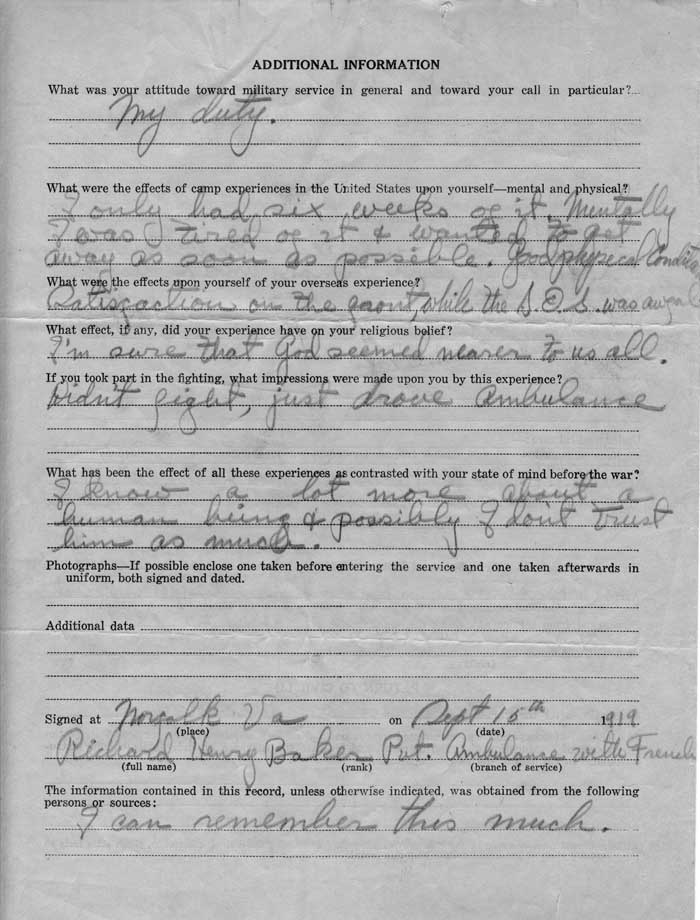 ADDITIONAL INFORMATION
What was your attitude toward military service in general and toward your call in particular?
My duty.
What were the effects of camp experiences in the United States upon yourself—mental and physical?
I only had six weeks of it. Mentally
I was tired of it & wanted to get
away as soon as possible. Good physical Condit
What were the effects upon yourself of your overseas experience?
Satisfaction on the front, while the S.O.S. was
What effect, if any, did your experience have on your religious belief?
I'm sure that God seemed nearer to us all.
If you took part in the fighting, what impressions were made upon you by this experience?
Didn't fight, just drove Ambulance
What has been the effect of all these experiences as contrasted with your state of mind before the war?
I know a lot more about a
human being & possibly I don't trust
him as much.
Photographs—If possible enclose one taken before entering the service and one taken afterwards in
uniform, both signed and dated.
Additional data
Signed at Norfolk Va on Sept 15th 1919
(place) (date)
Richard Henry Baker Pvt. Ambulance with French
(full name) (rank) (branch of service)
The information contained in this record, unless otherwise indicated, was obtained from the following
persons or sources:
I can remember this much.